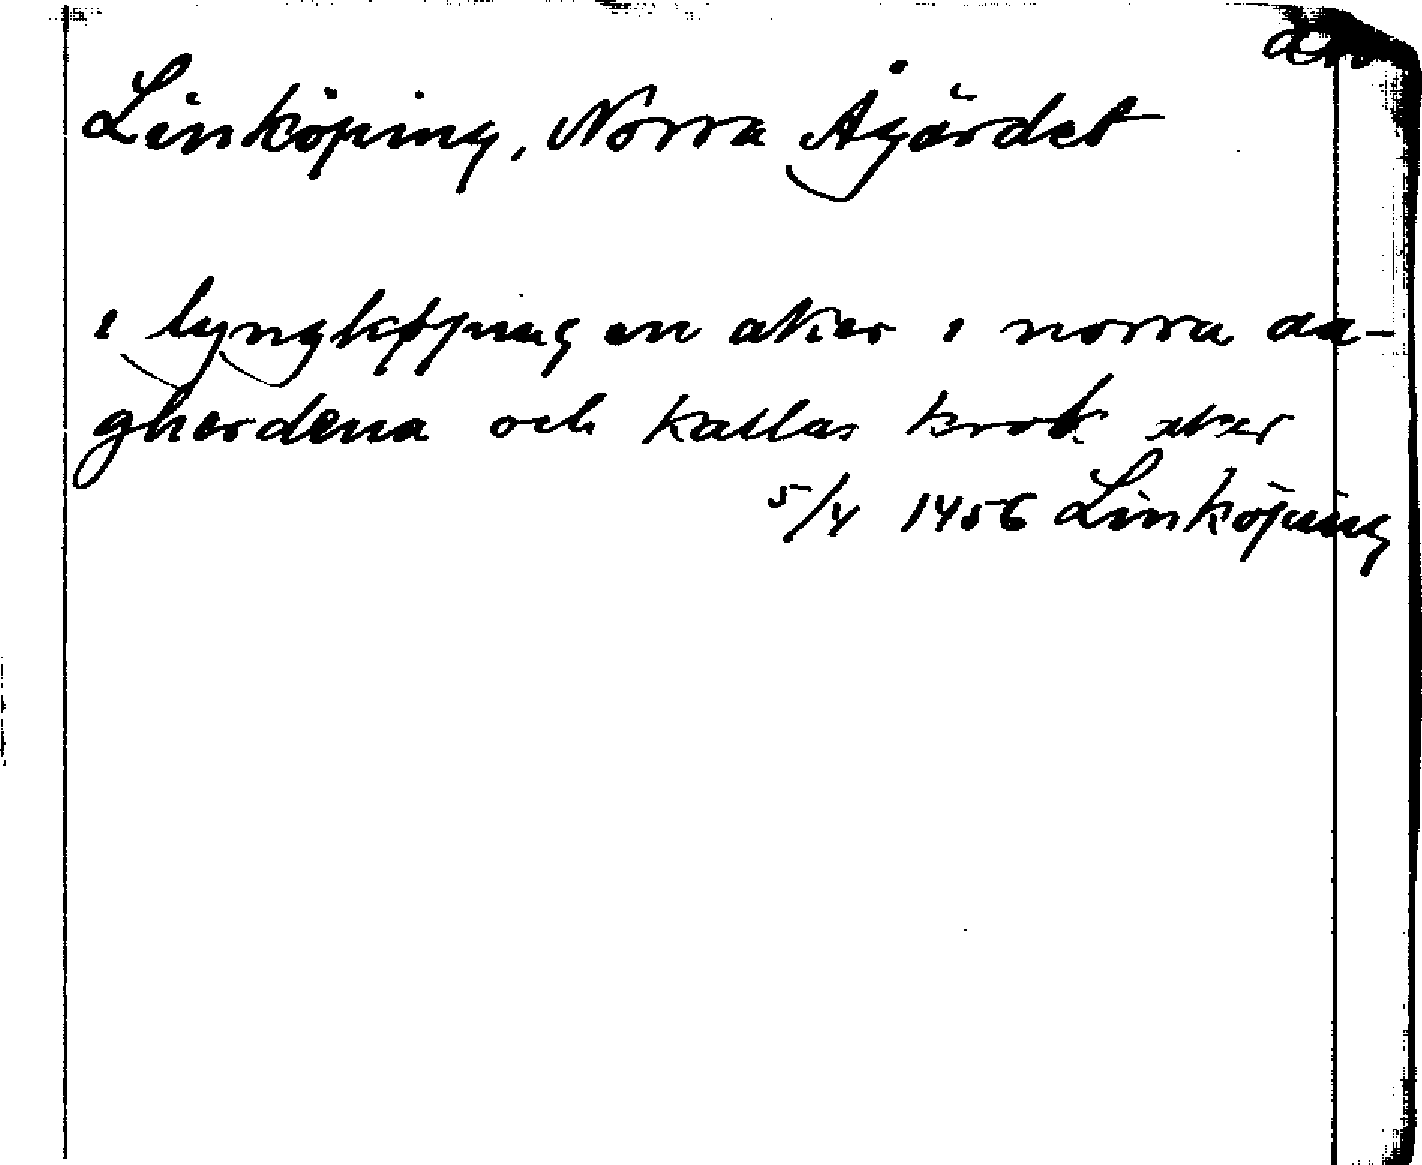 Linköping, Norra Ågärdet
i lyngkøping en aker i norra aa-
gherdena och kallas krok aker
5/4 1456 Linköping